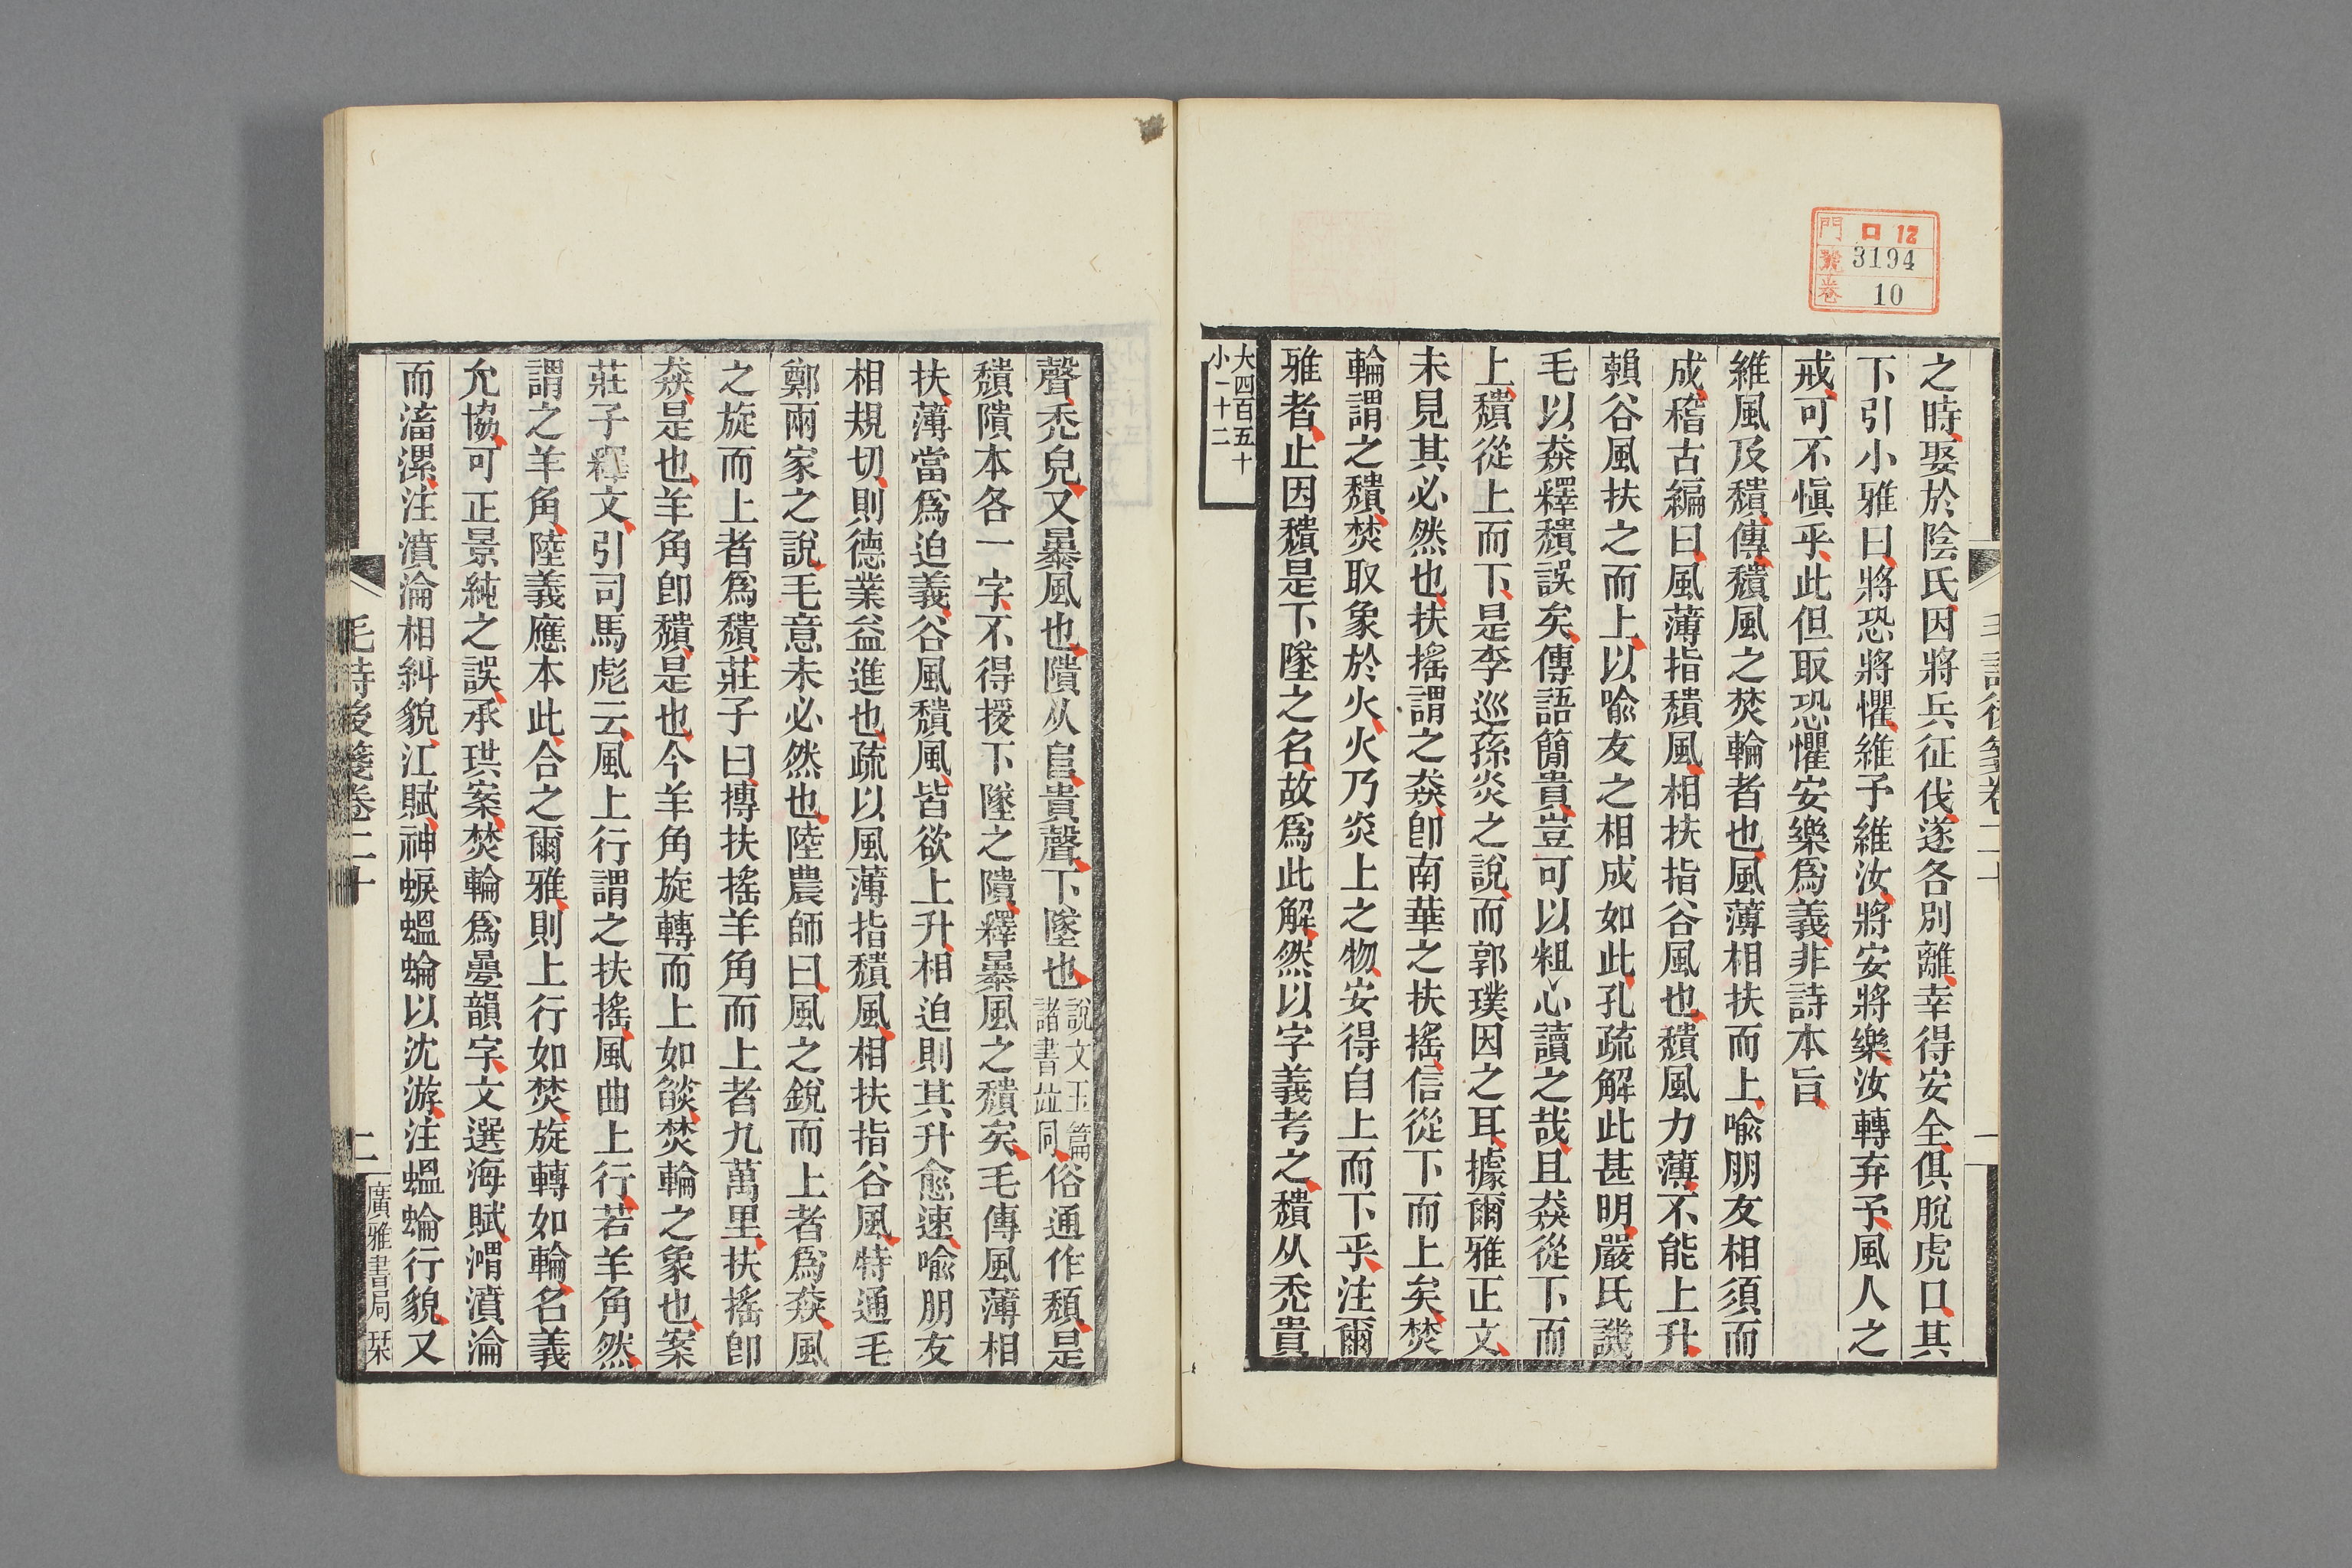 門 口12
號 3194
卷 10
毛詩後箋卷二十
一
之時娶於陰氏因將兵征伐遂各別離幸得安全俱脫虎口其
下引小雅曰將恐將懼維予維汝將安將樂汝轉弃予風人之
戒可不愼乎此但取恐懼安樂爲義非詩本旨
維風及穨傳穨風之焚輪者也風薄相扶而上喩朋友相須而
成稽古編曰風薄指穨風相扶指谷風也穨風力薄不能上升
賴谷風扶之而上以喩友之相成如此孔疏解此甚明嚴氏譏
毛以猋釋穨誤矣傳語簡貴豈可以粗心讀之哉且猋從下而
上穨從上而下是李巡孫炎之說而郭璞因之耳據爾雅正文
未見其必然也扶搖謂之猋卽南華之扶搖信從下而上矣焚
輪謂之穨焚取象於火火乃炎上之物安得自上而下乎注爾
雅者止因穨是下墜之名故爲此解然以字義考之穨从秃貴
大四百五十
小一十二
聲秃皃又暴風也隤从𨸏貴聲下墜也說文玉篇諸書竝同俗通作頽是
穨隤本各一字不得援下墜之隤釋暴風之穨矣毛傳風薄相
扶薄當爲迫義谷風穨風皆欲上升相迫則其升愈速喩朋友
相規切則德業益進也疏以風薄指穨風相扶指谷風特通毛
鄭兩家之說毛意未必然也陸農師曰風之銳而上者爲猋風
之旋而上者爲穨莊子曰摶扶搖羊角而上者九萬里扶搖卽
猋是也羊角卽穨是也今羊角旋轉而上如燄焚輪之象也案
莊子釋文引司馬彪云風上行謂之扶搖風曲上行若羊角然
謂之羊角陸義應本此合之爾雅則上行如焚旋轉如輪名義
允協可正景純之誤承珙案焚輪爲曡韻字文選海賦㵐濆淪
而滀漯注濆淪相糾貌江賦神蜧蝹蜦以沈游注蝹蜦行貌又
毛詩後箋卷二十
二
廣雅書局栞